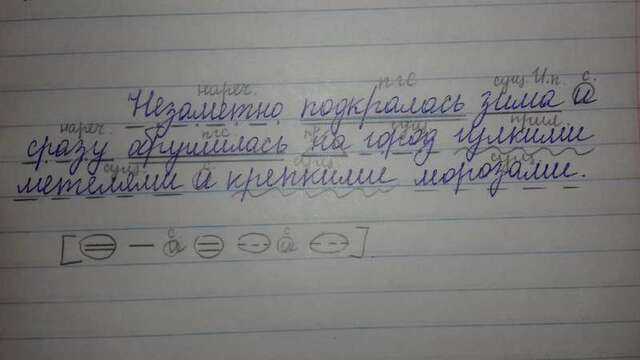 нареч. пгс сущ. И.п. с.
Незаметно подкралась зима и
нареч. пгс пр. сущ. прил.
сразу обрушилась на город гулкими
сущ. с. сущ.
метелями и крепкими морозами.
с с
[ и и ].